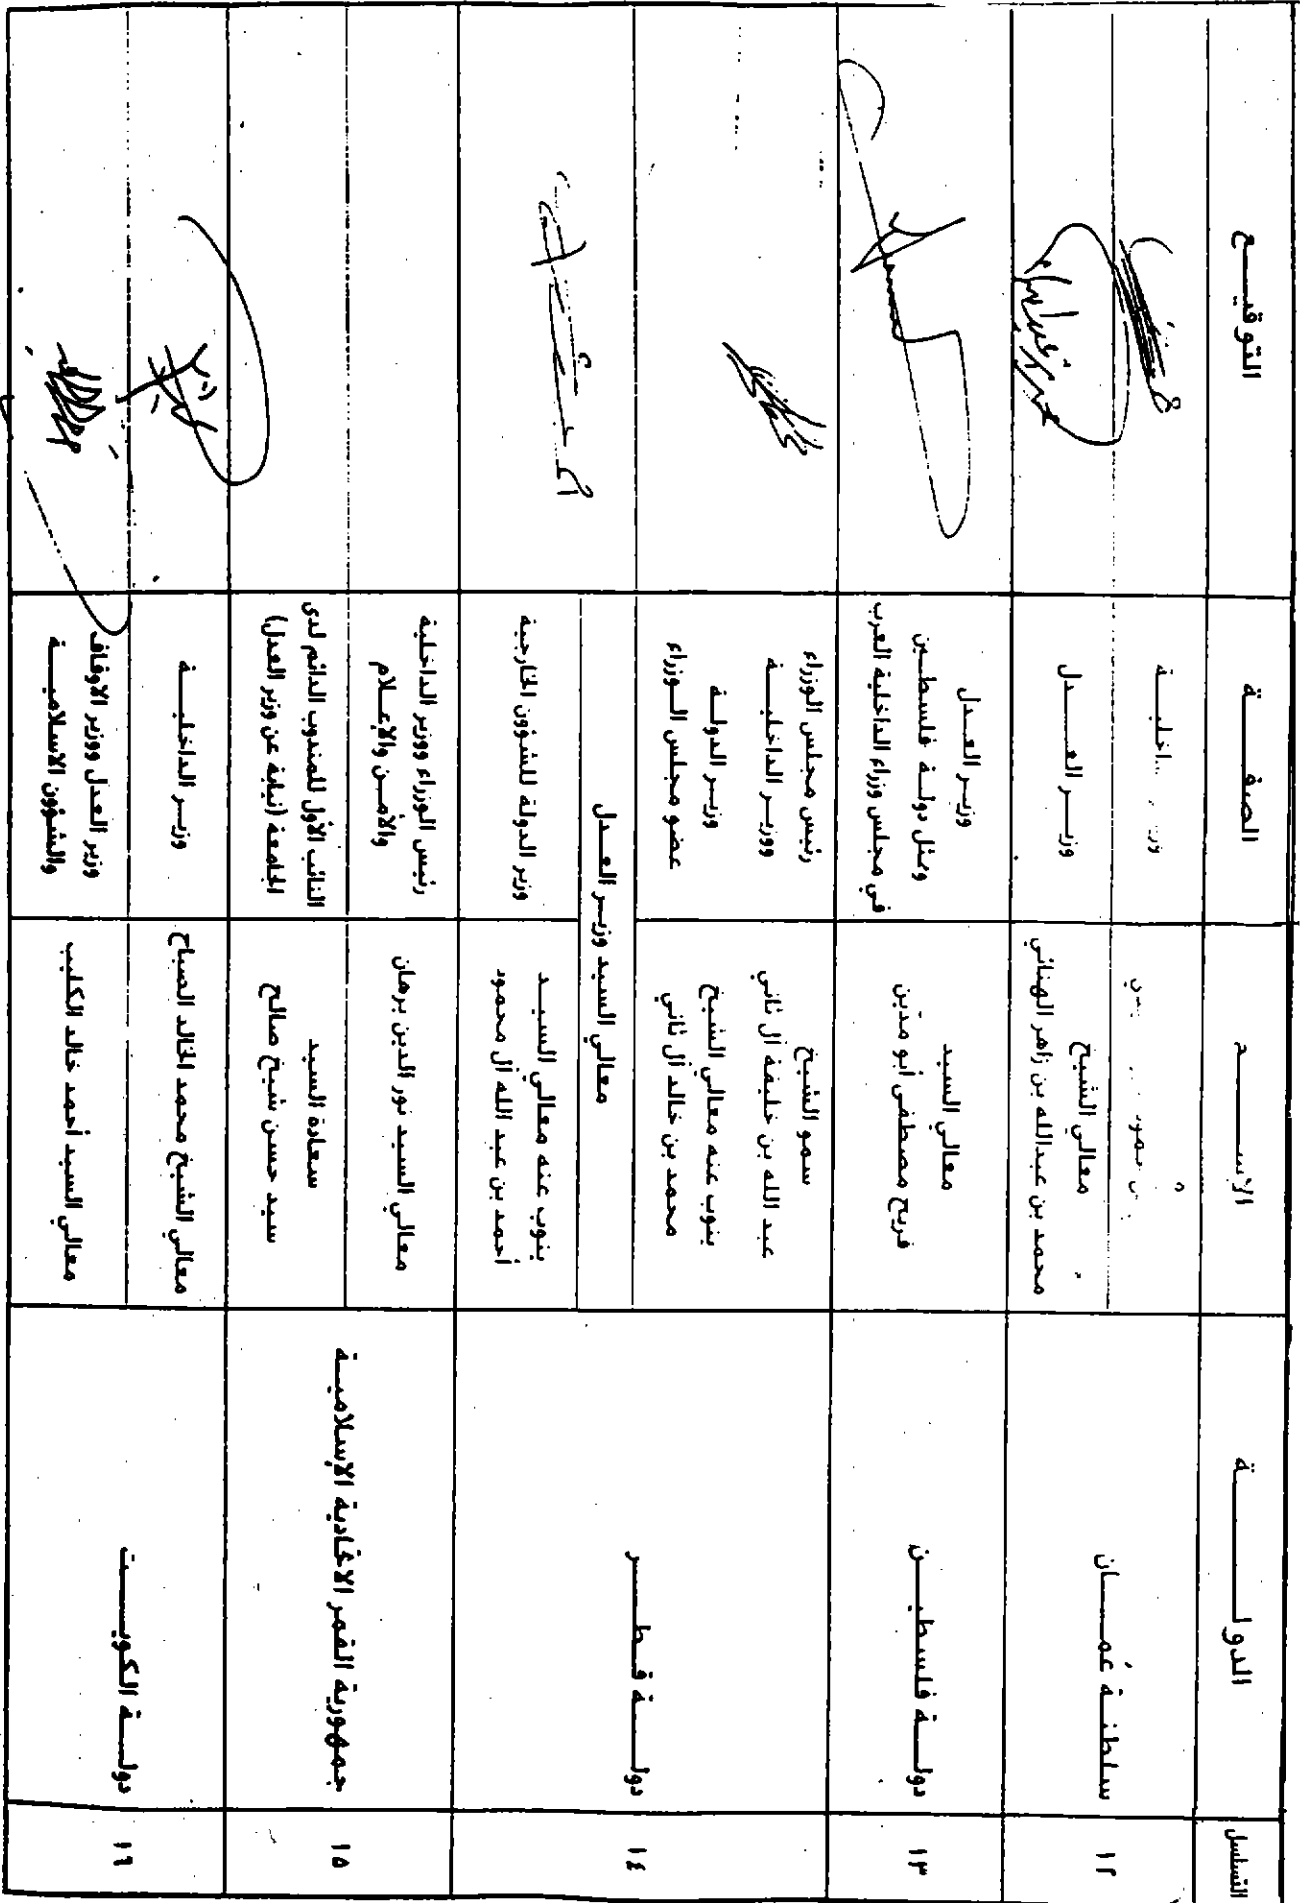 التسلسل
الدولـــــــــة
الإســـــــم
الصفـــة
التوقيـــــع
١٢
سلطنــة عُمـــان
معالي الشيخ
محمد بن عبدالله بن زاهر الهنائي
وزيــر العـــدل
١٣
دولــــة فلسطيــــن
معالي السيد
فريح مصطفى أبو مدين
وزيـر العــدل
وممثل دولـة فلسطـين
في مجلس وزراء الداخلية العرب
١٤
دولــــة قـطــــر
سمو الشيخ
عبد الله بن خليفة آل ثاني
ينوب عنه معالي الشيخ
محمد بن خالد آل ثاني
رئيس مجلس الوزراء
ووزيــر الداخليــــة
وزيــر الدولــة
عضو مجلس الـوزراء
معالي السيد وزيــر العــدل
ينوب عنه معالي السيـــد
أحمد بن عبد الله آل محمود
وزير الدولة للشؤون الخارجية
١٥
جمهورية القمر الاتحادية الإسلاميـــة
معالي السيد نور الدين برهان
رئيس الوزراء ووزير الداخلية
والأمـــن والإعـــلام
سعادة السيد
سيد حسن شيخ صالح
النائب الأول للمندوب الدائم لدى
الجامعة (نيابة عن وزير العدل)
١٦
دولــــة الكويــــت
معالي الشيخ محمد الخالد الصباح
وزيـــر الداخليـــــة
معالي السيد أحمد خالد الكليب
وزير العدل ووزير الاوقاف
والشؤون الاسلاميـــــة